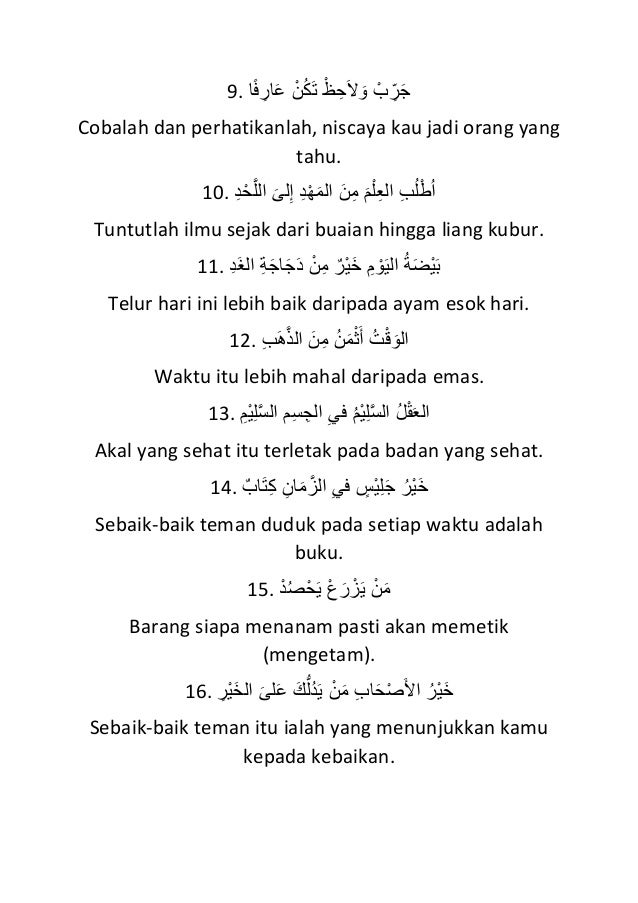 9. جَرِّبْ وَلاَحِظْ تَكُنْ عَارِفًا
Cobalah dan perhatikanlah, niscaya kau jadi orang yang
tahu.
10. اُطْلُبِ العِلْمَ مِنَ المَهْدِ إِلىَ اللَّحْدِ
Tuntutlah ilmu sejak dari buaian hingga liang kubur.
11. بَيْضَةُ اليَوْمِ خَيْرٌ مِنْ دَجَاجَةِ الغَدِ
Telur hari ini lebih baik daripada ayam esok hari.
12. الوَقْتُ أَثْمَنُ مِنَ الذَّهَبِ
Waktu itu lebih mahal daripada emas.
13. العَقْلُ السَّلِيْمُ فيِ الجِسِم السَّلِيْمِ
Akal yang sehat itu terletak pada badan yang sehat.
14. خَيْرُ جَلِيْسٍ في الزَّمَانِ كِتَابٌ
Sebaik-baik teman duduk pada setiap waktu adalah
buku.
15. مَنْ يَزْرَعْ يَحْصُدْ
Barang siapa menanam pasti akan memetik
(mengetam).
16. خَيْرُ الأَصْحَابِ مَنْ يَدُلُّكَ عَلىَ الخَيْرِ
Sebaik-baik teman itu ialah yang menunjukkan kamu
kepada kebaikan.